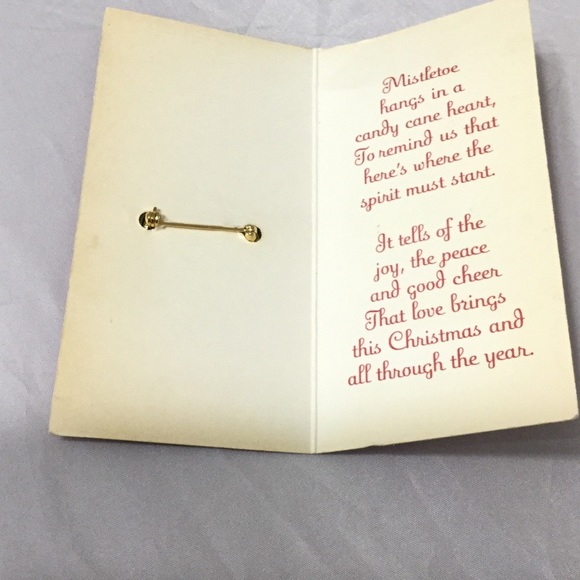 Mistletoe
hangs in a
candy cane heart,
To remind us that
here's where the
spirit must start.
It tells of the
joy, the peace
and good cheer
That love brings
this Christmas and
all through the year.